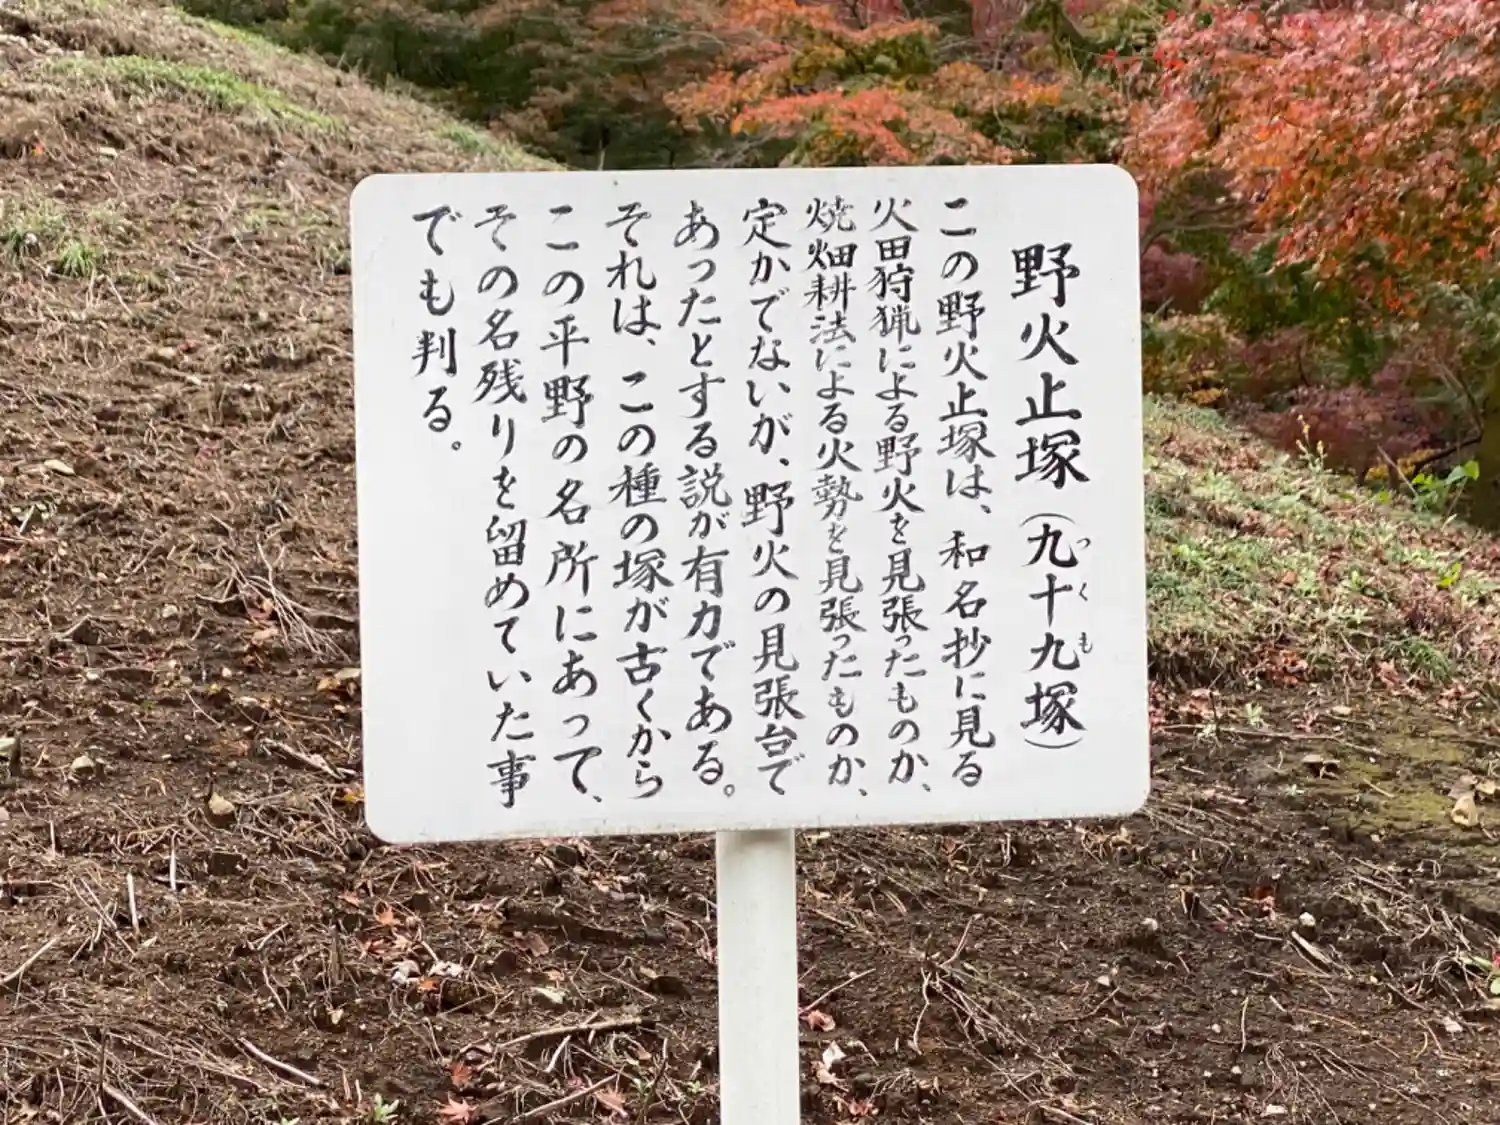 野火止塚（九十九塚）
つくも
この野火止塚は、和名抄に見る
火田狩猟による野火を見張ったものか、
焼畑耕法による火勢を見張ったものか、
定かでないが、野火の見張台で
あったとする説が有力である。
それは、この種の塚が古くから
この平野の名所にあって、
その名残りを留めていた事
でも判る。